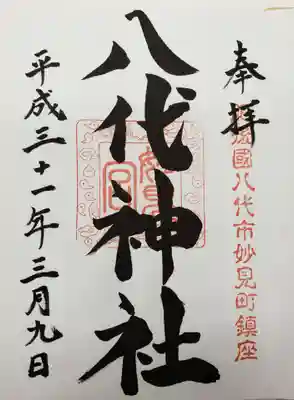 奉拝
國八代市妙見町鎮座
八代神社
妙見宮
平成三十一年三月九日